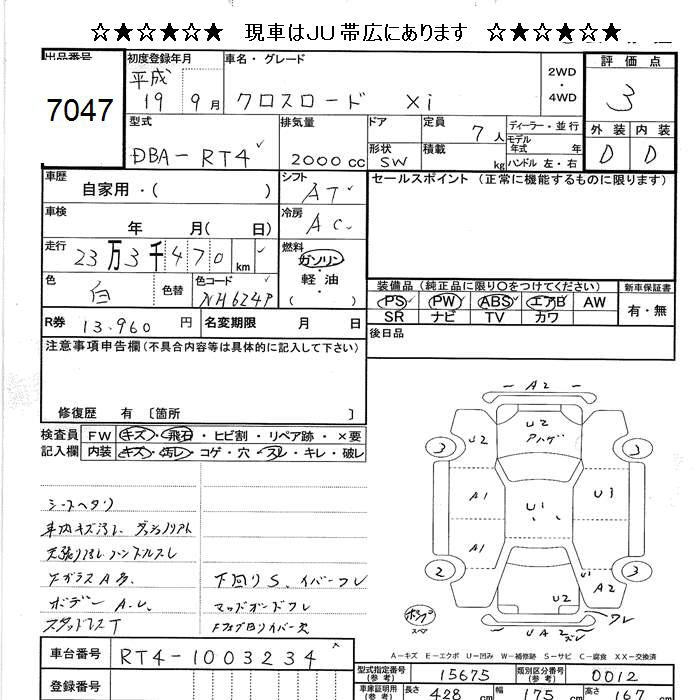 ☆★☆★☆☆ 現車はJU帯広にあります ☆★☆★☆☆
出品番号
7047
初度登録年月
平成
19 9月
車名・グレード
クロスロード Xi
2WD
・
4WD
評価点
3
外装 内装
D D
型式
DBA-RT4
排気量
2000cc
ドア
形状
SW
定員
7人
積載
kg
ディーラー・並行
モデル
年式 年
ハンドル 左・右
車歴
自家用・( )
シフト
AT
セールスポイント (正常に機能するものに限ります)
車検
年 月( 日)
冷房
AC
走行
23万3千470km
燃料
ガソリン
・
軽油
( )
色
白
色替
色コード
NH624P
装備品 (純正品に限り○をつけてください)
新車保証書
PS PW ABS エアB AW
SR ナビ TV カワ
有・無
R券 13,960円
名変期限 月 日
後日品
注意事項申告欄(不具合内容等は具体的に記入して下さい)
修復歴 有 〔箇所 〕
検査員
記入欄
FW キズ・飛石・ヒビ割・リペア跡・×要
内装 キズ・汚レ・コゲ・穴・スレ・キレ・破レ
シートヘタリ
車内キズ汚レ
天張り汚レ ハンドルスレ
Fガラス A多
ボデー A.U.
スタッドレスT
下回りS
A2
U2
U2
3
3
A1
U1
U3
A1
2
3
U1
A2
U2
UA2
スペア
A-キズ E-エクボ U-凹み W-補修跡 S-サビ C-腐食 XX-交換済
車台番号
RT4-1003234
登録番号
型式指定番号
(参考)
15675
類別区分番号
(参考)
0012
車庫証明用
(参考)
長さ 428 cm
幅 175 cm
高さ 167 cm